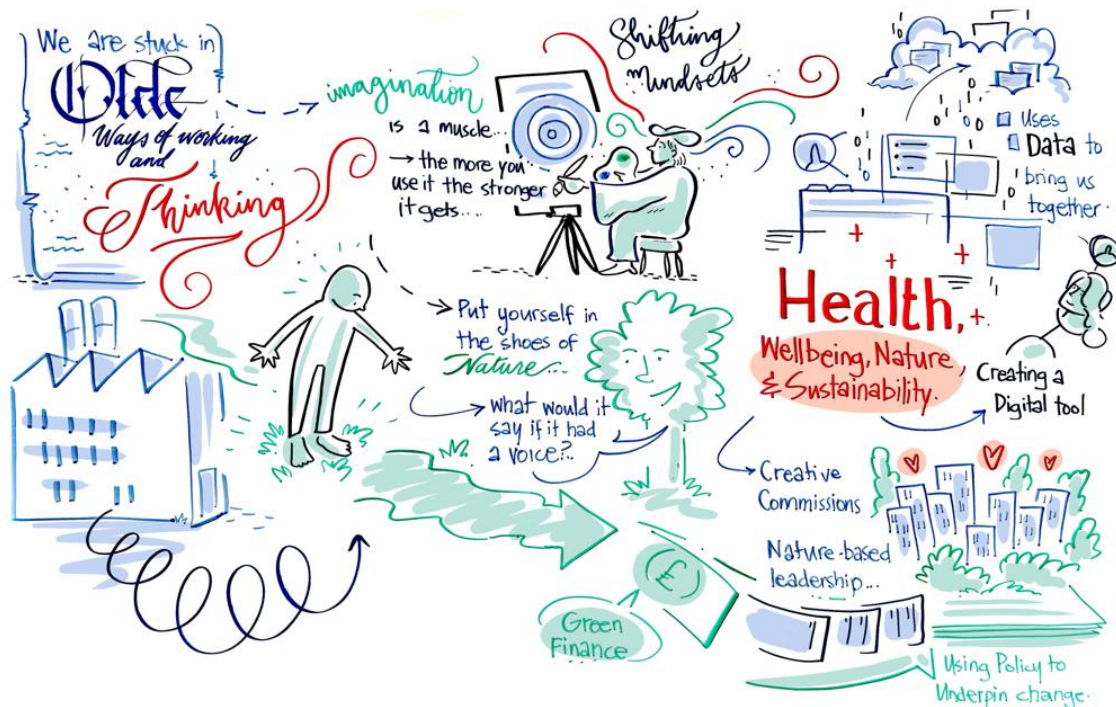 We are stuck in
Olde
Ways of working
and
Thinking
imagination
is a muscle...
→ the more you
use it the stronger
it gets....
Shifting
Mindsets
Uses
Data to
bring us
together.
Put yourself in
the shoes of
Nature...
what would it
say if it had
a voice?..
Health,
Wellbeing, Nature,
& Sustainability.
Creating a
Digital tool
Creative
Commissions
Nature-based
leadership...
£
Green
Finance
Using Policy to
Underpin change.